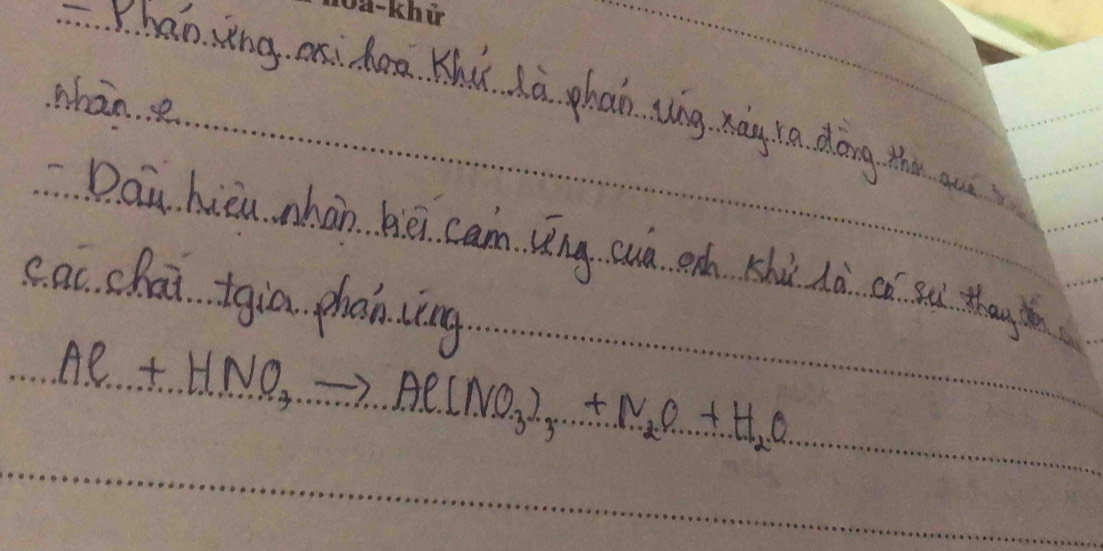 hoá-khử
- Phản ứng oxi hoá khử là phản ứng xảy ra đồng thời quá
nhận e
- Dấu hiệu nhận biết cảm ứng của oxh khử là có sự thay đổi
các chất tgia phản ứng
Al + HNO₃ → Al(NO₃)₃ + N₂O + H₂O